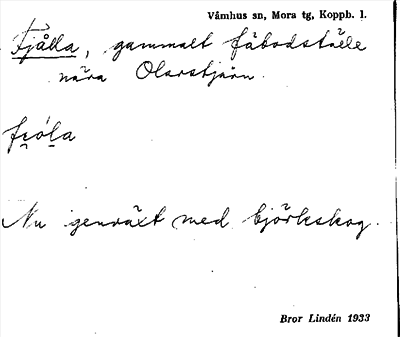 Våmhus sn, Mora tg, Koppb. l.
Fjålla, gammalt fäbodställe
nära Olarstjärn.
fi̯ó̜l̠a
Nu genväxt med björkskog.
Bror Lindén 1933